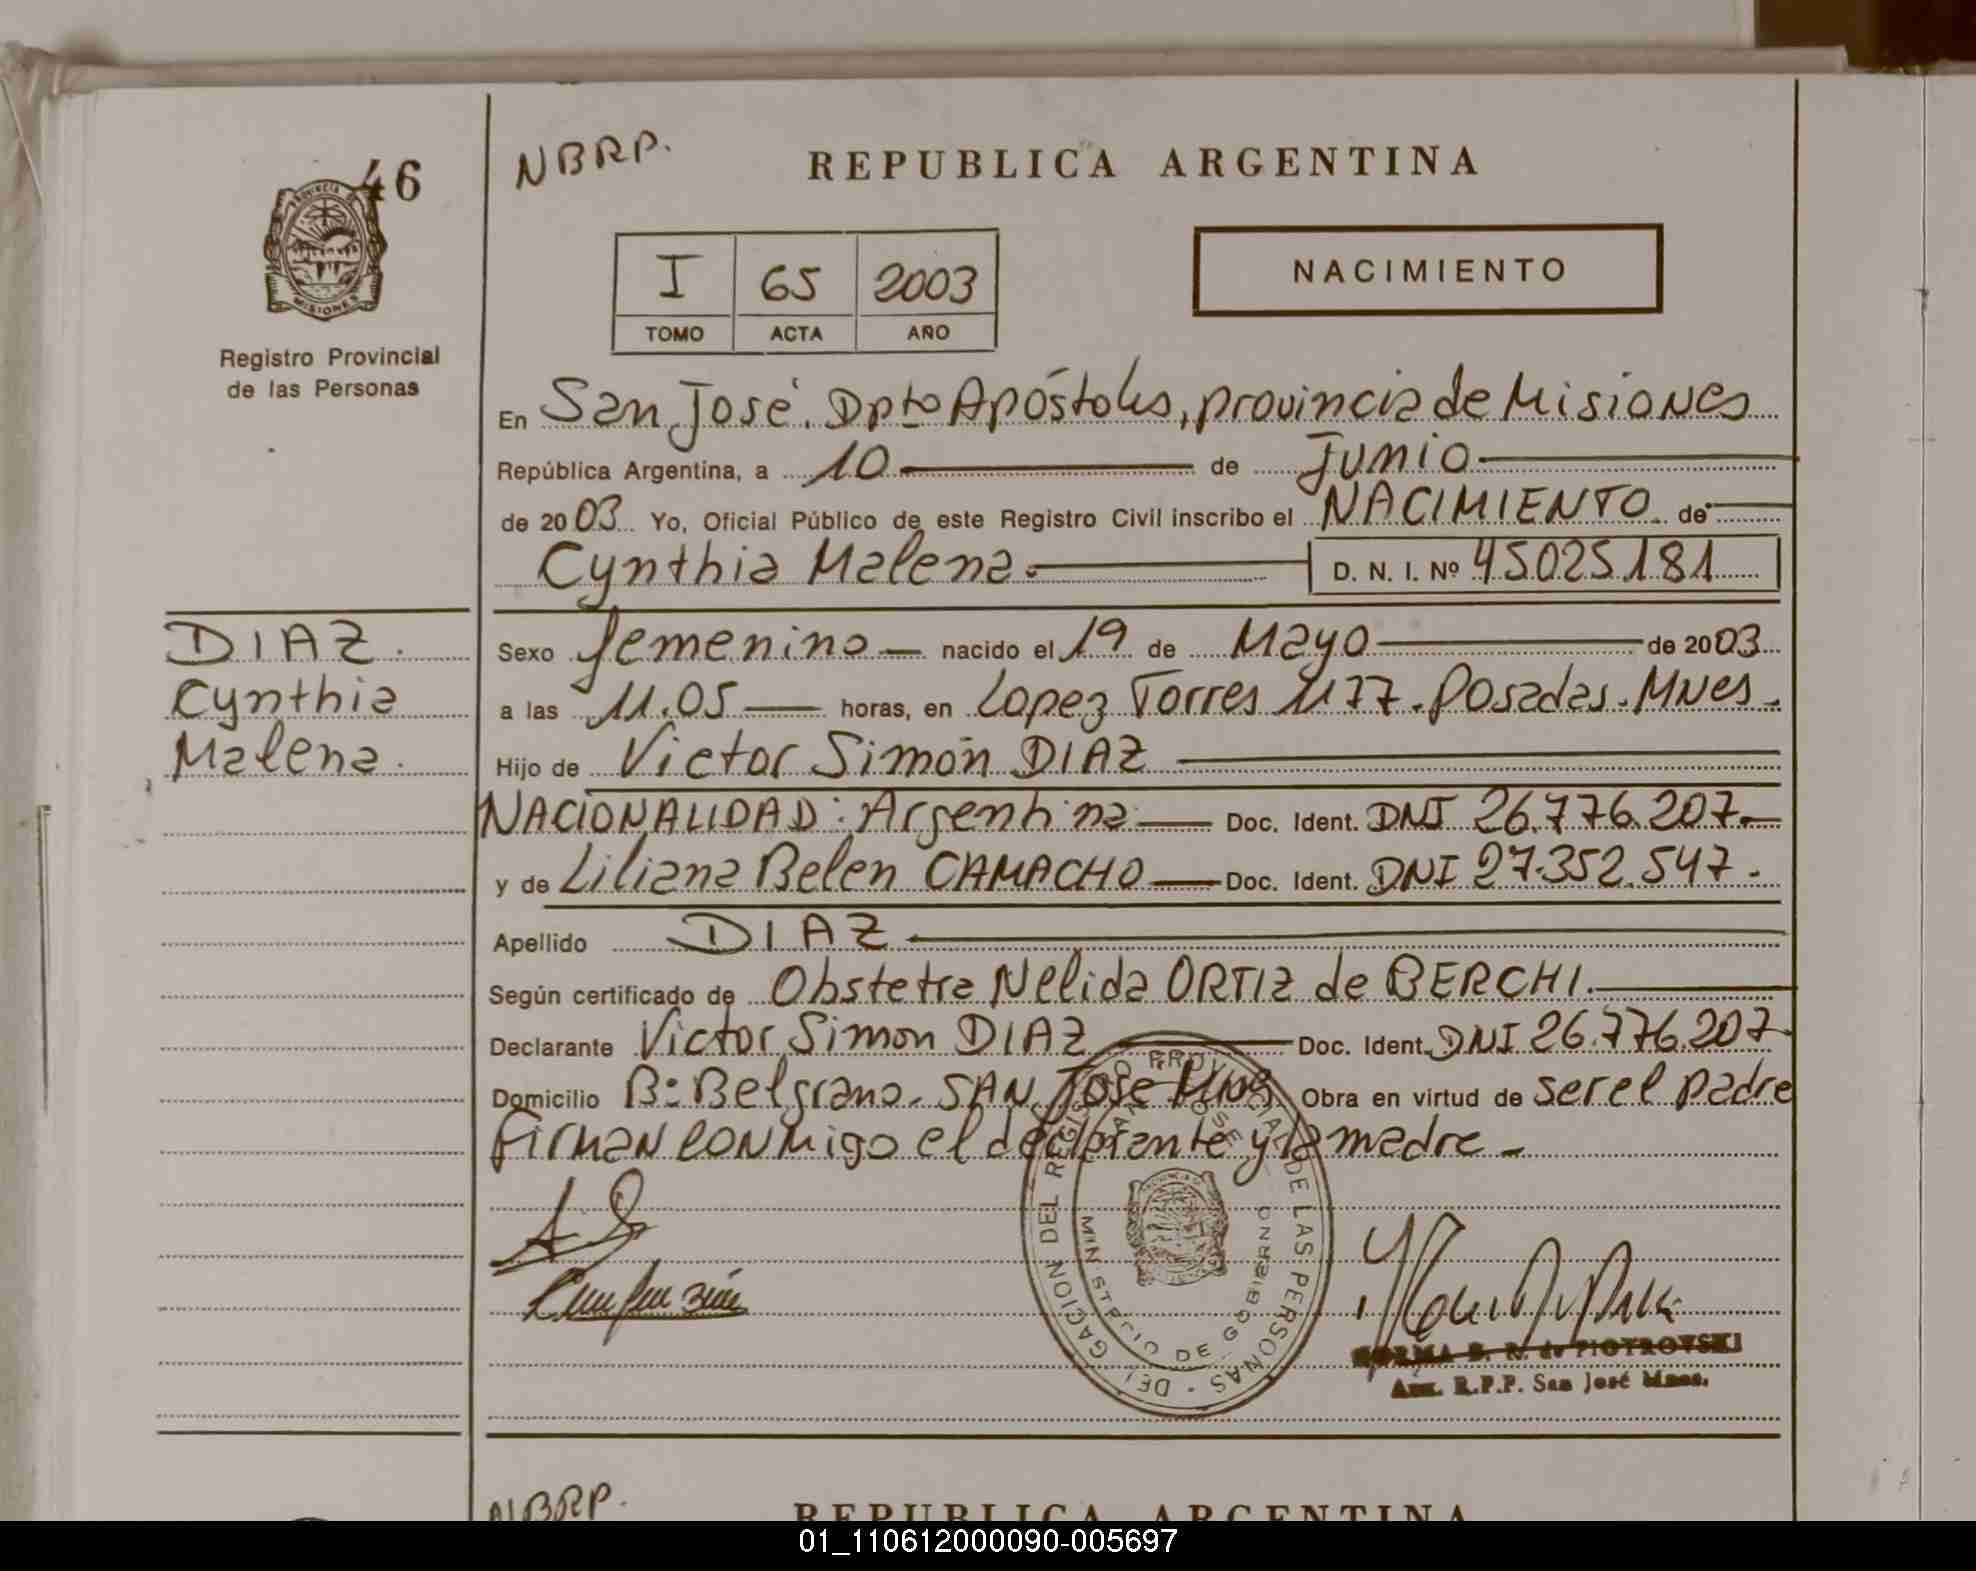 46
PROVINCIA DE
MISIONES
Registro Provincial
de las Personas
NBRP.
REPUBLICA ARGENTINA
I 65 2003
TOMO ACTA AÑO
NACIMIENTO
En San José. Dpto Apóstoles, provincia de Misiones
República Argentina, a 10 de Junio
de 2003 Yo, Oficial Público de este Registro Civil inscribo el NACIMIENTO de
Cynthia Malena. D. N. I. Nº 45025181
DIAZ.
Cynthia
Malena.
Sexo femenino nacido el 19 de Mayo de 2003
a las 11.05 horas, en Lopez Torres 1177. Posadas. Mnes.
Hijo de Victor Simón DIAZ
NACIONALIDAD: Argentina Doc. Ident. DNI 26.776.207.
y de Liliana Belen CAMACHO Doc. Ident. DNI 27.352.547.
Apellido DIAZ
Según certificado de Obstetra Nelida ORTIZ de BERCHI.
Declarante Victor Simon DIAZ Doc. Ident. DNI 26.776.207
Domicilio Bº Belgrano. SAN Jose Mnes Obra en virtud de ser el padre
firman conmigo el declarante y la madre
DELEGACION DEL REGISTRO PROVINCIAL DE LAS PERSONAS
SAN JOSE
MINISTERIO DE GOBIERNO
NORMA B. R. de PIOTROVSKI
Aux. R.P.P. San José Mnes.
NBRP.
REPUBLICA ARGENTINA
01_110612000090-005697